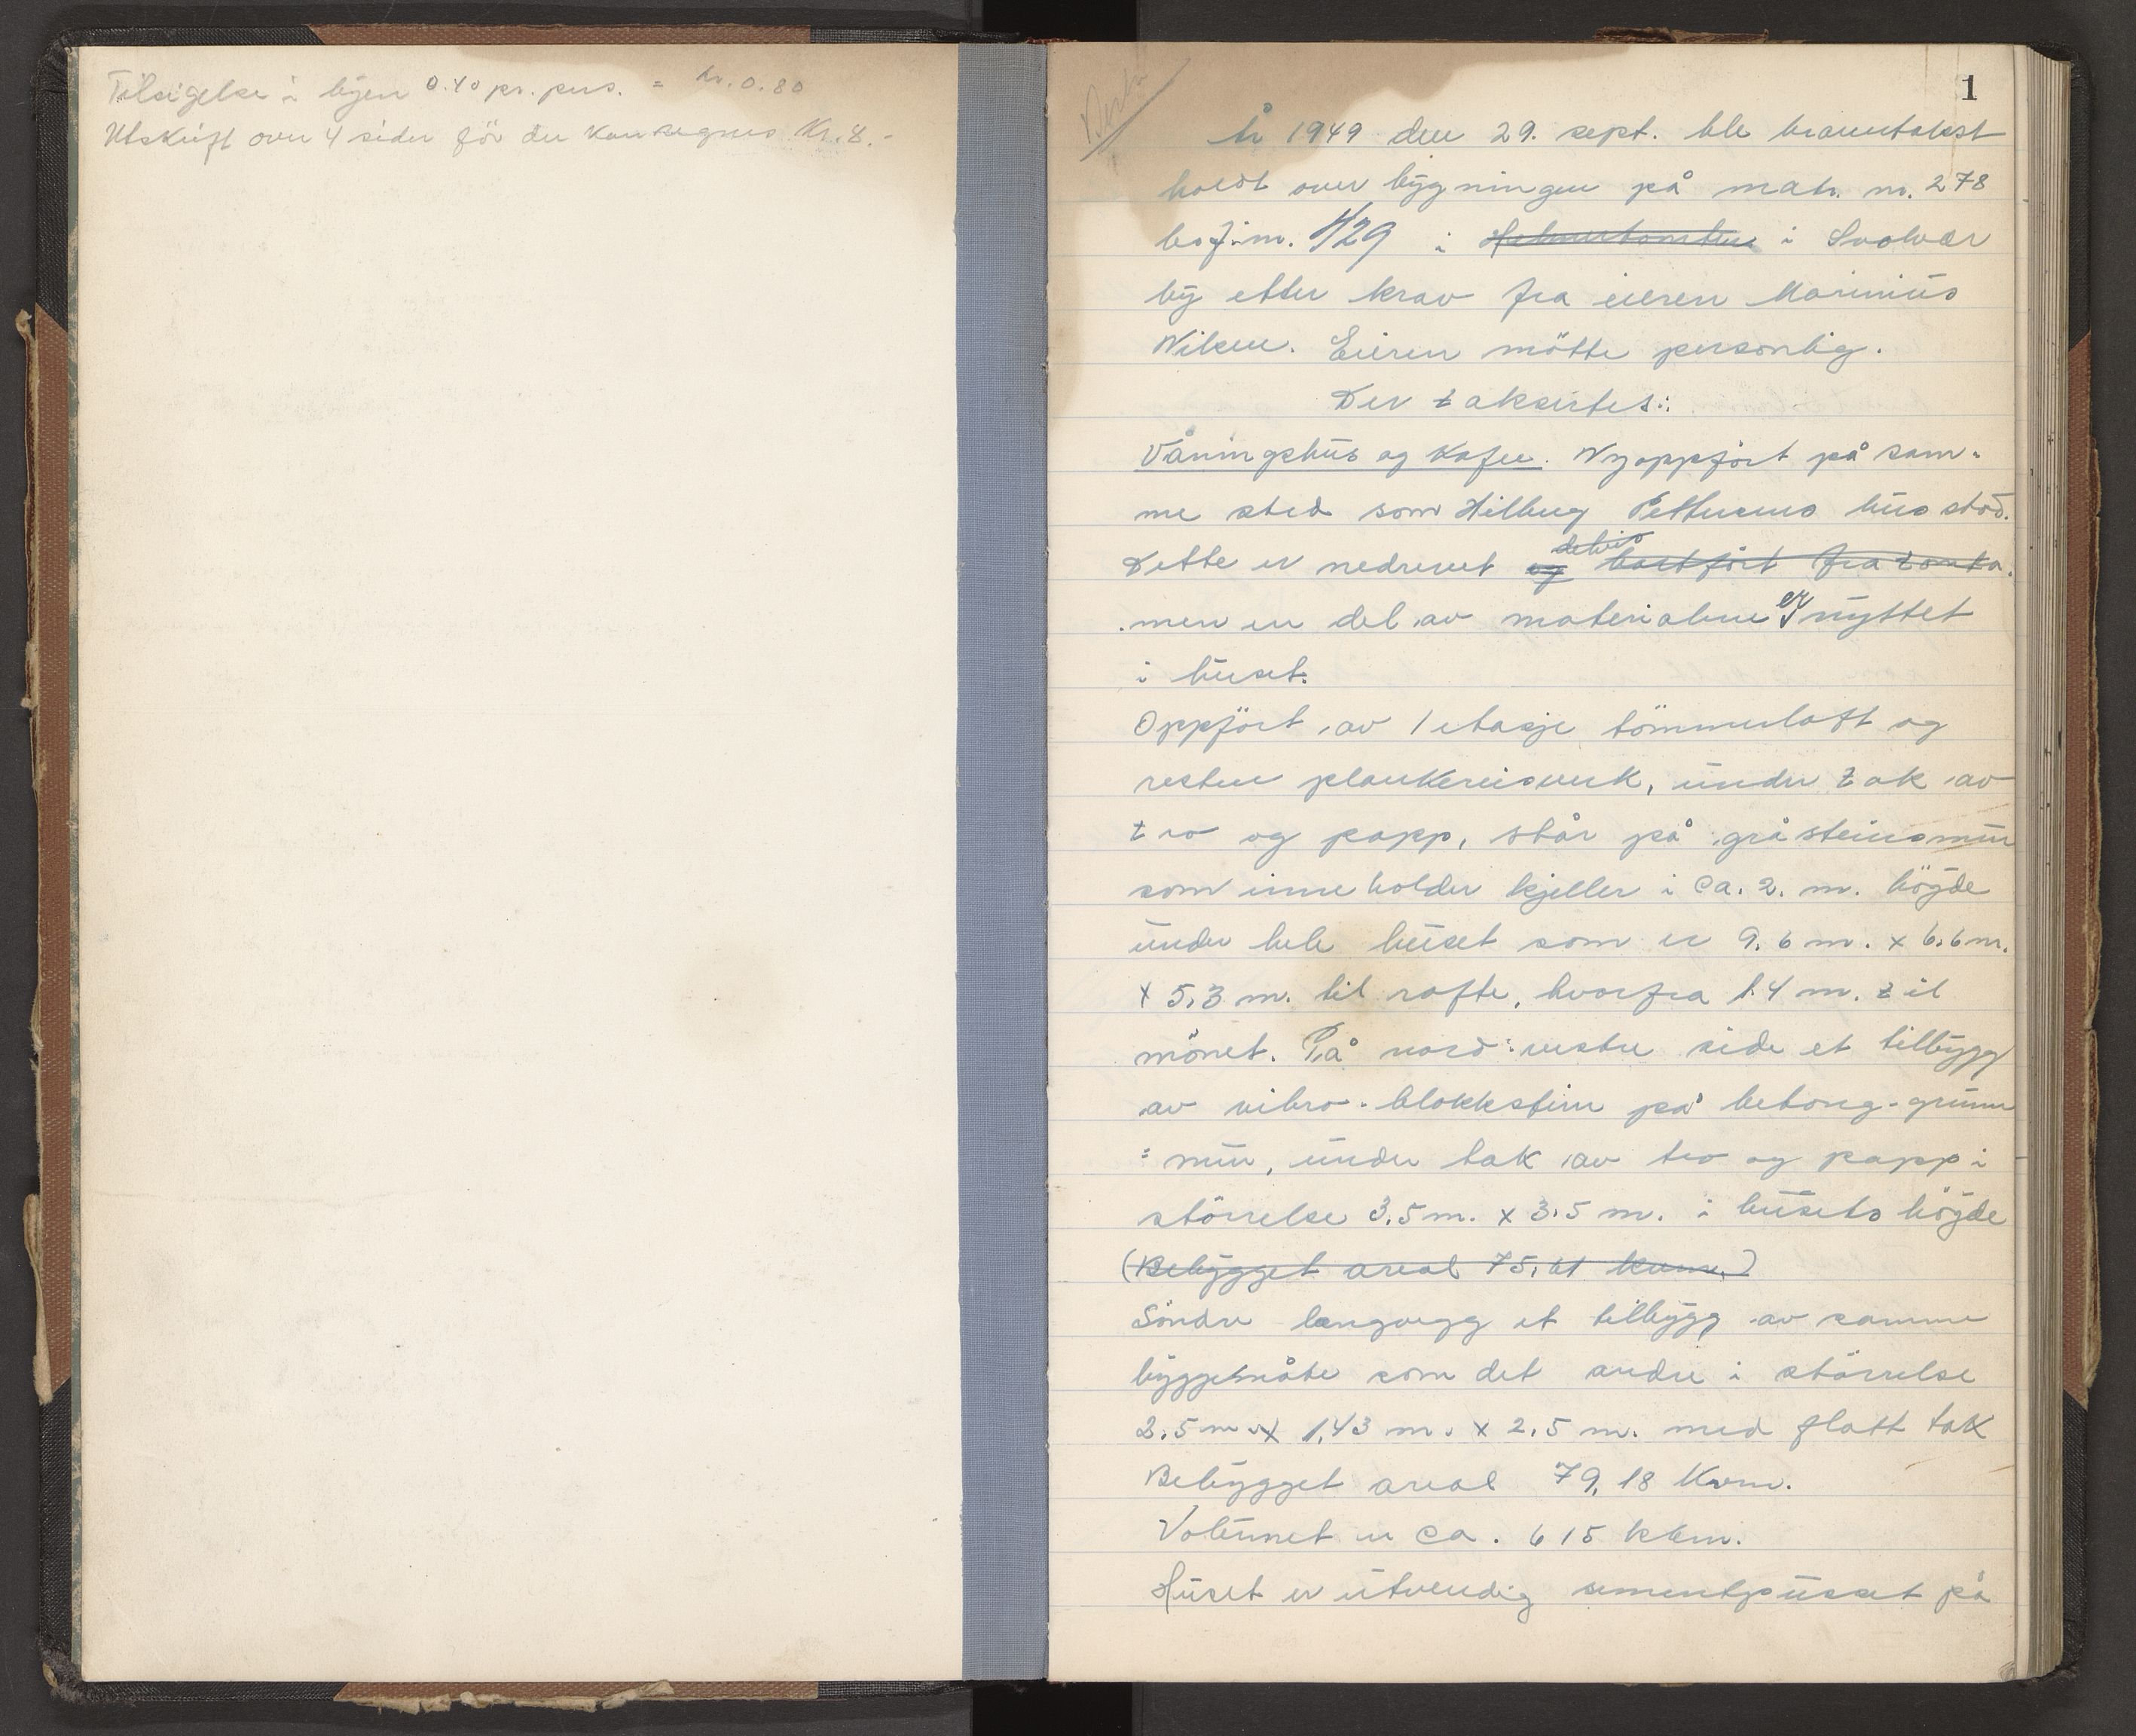 Tilsigelse i byen 0.40 pr. pers. = kr. 0.80
Utskrift over 4 sider för der kan regnes Kr. 8.-
1
År 1949 den 29. sept. ble branntakst
holdt over bygningen på matr. nr. 278
i i Svolvær
by etter krav fra eieren Marinius
Nilsen. Eieren mötte personlig.
Der taksertes:
Våningshus og Kafee. Nyoppfört på sam-
me sted som Hilberg Pettersens hus stod.
Dette er nedrevet og delvis bortfört fra tomta.
men en del av materialene er nyttet
i huset.
Oppfört av 1 etasje tömmerloft og
resten plankereisverk, under tak av
tro og papp, står på gråsteinsmur
som inneholder kjeller i ca. 2. m. högde
under hele huset som er 9,6 m. x 6,6 m.
x 5,3 m. til rafte, hvorfra 1.4 m. til
mönet. På nord-vestre side et tilbygg
av vibro-blokkstein på betong-grunn
=mur, under tak av tro og papp i
störrelse 3,5 m. x 3,5 m. i husets högde
(Bebygget areal 75,61 kvm.)
Söndre langvegg et tilbygg av samme
byggemåte som det andre i störrelse
2,5 m. x 1,43 m. x 2,5 m. med flatt tak
Bebygget areal 79,18 Kvm.
Volumet er ca. 615 kbm.
Huset er utvendig sementpusset på